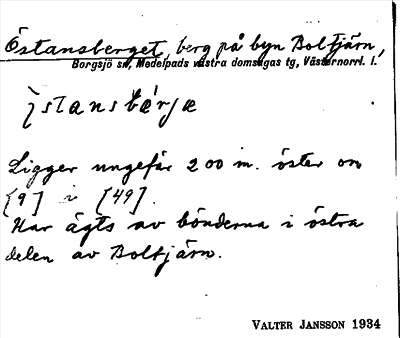 Östansberget, berg på byn Boltjärn,
Borgsjö sn, Medelpads västra domsagas tg, Västernorrl. l.
Ligger ungefär 200 m. öster om
[9] i [49].
Har ägts av bönderna i östra
delen av Boltjärn.
VALTER JANSSON 1934